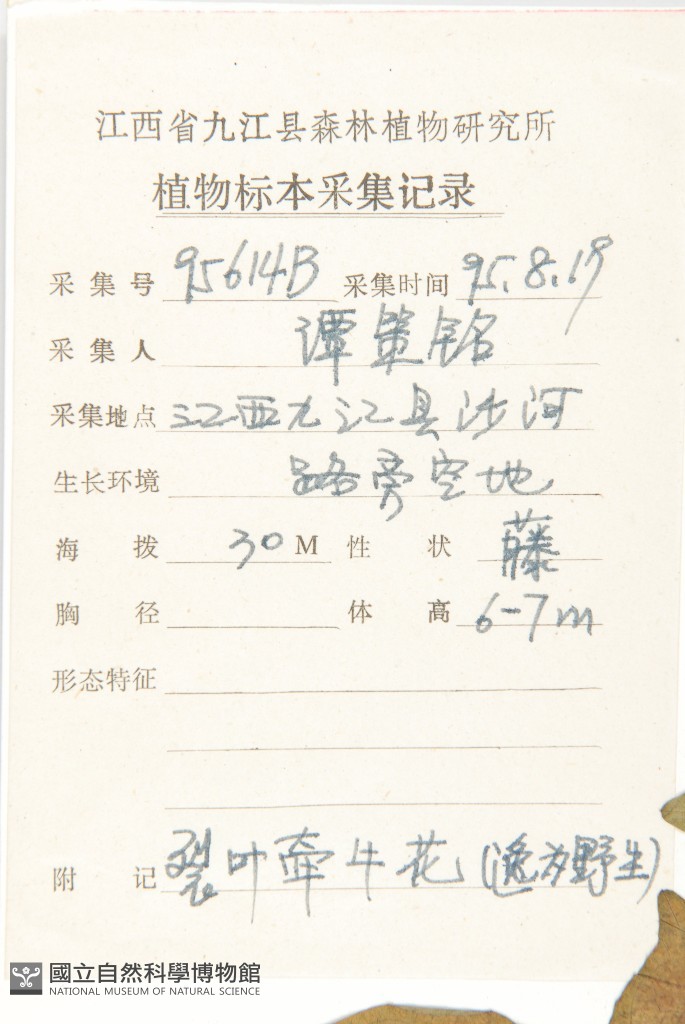 江西省九江县森林植物研究所
植物标本采集记录
采集号 95614B 采集时间 95.8.19
采集人 谭策铭
采集地点 江西九江县沙河
生长环境 路旁空地
海拨 30 M 性状 藤
胸径 体高 6-7m
形态特征
附记 裂叶牵牛花(逸为野生)
國立自然科學博物館
NATIONAL MUSEUM OF NATURAL SCIENCE